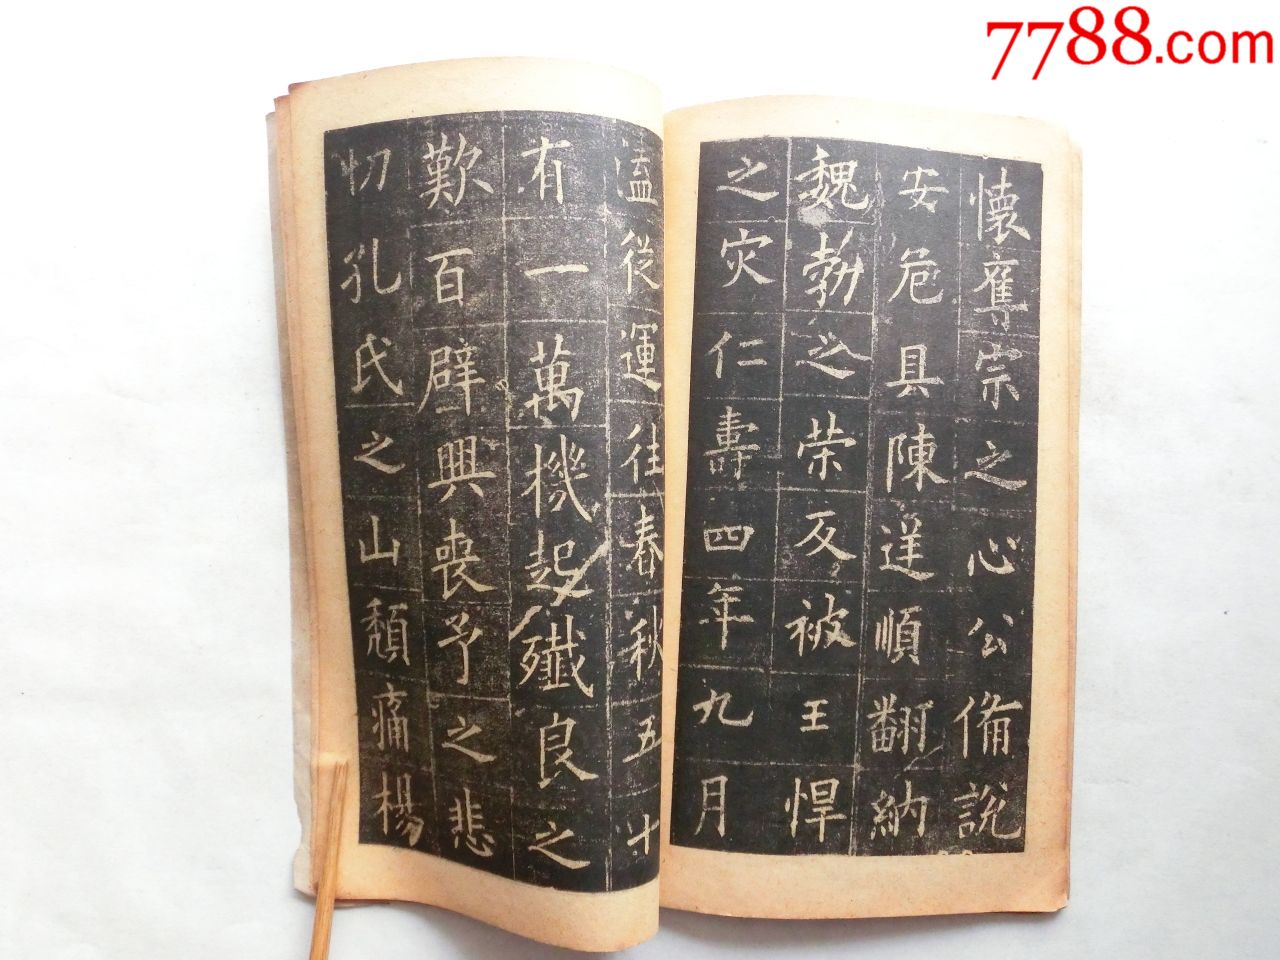 7788.com
懷奪宗之心公俻說
安危具陳逆順翻納
魏勃之榮反被王悍
之灾仁壽四年九月
溘從運往春秋五十
有一萬機起殲良之
歎百辟興喪予之悲
切孔氏之山頹痛楊